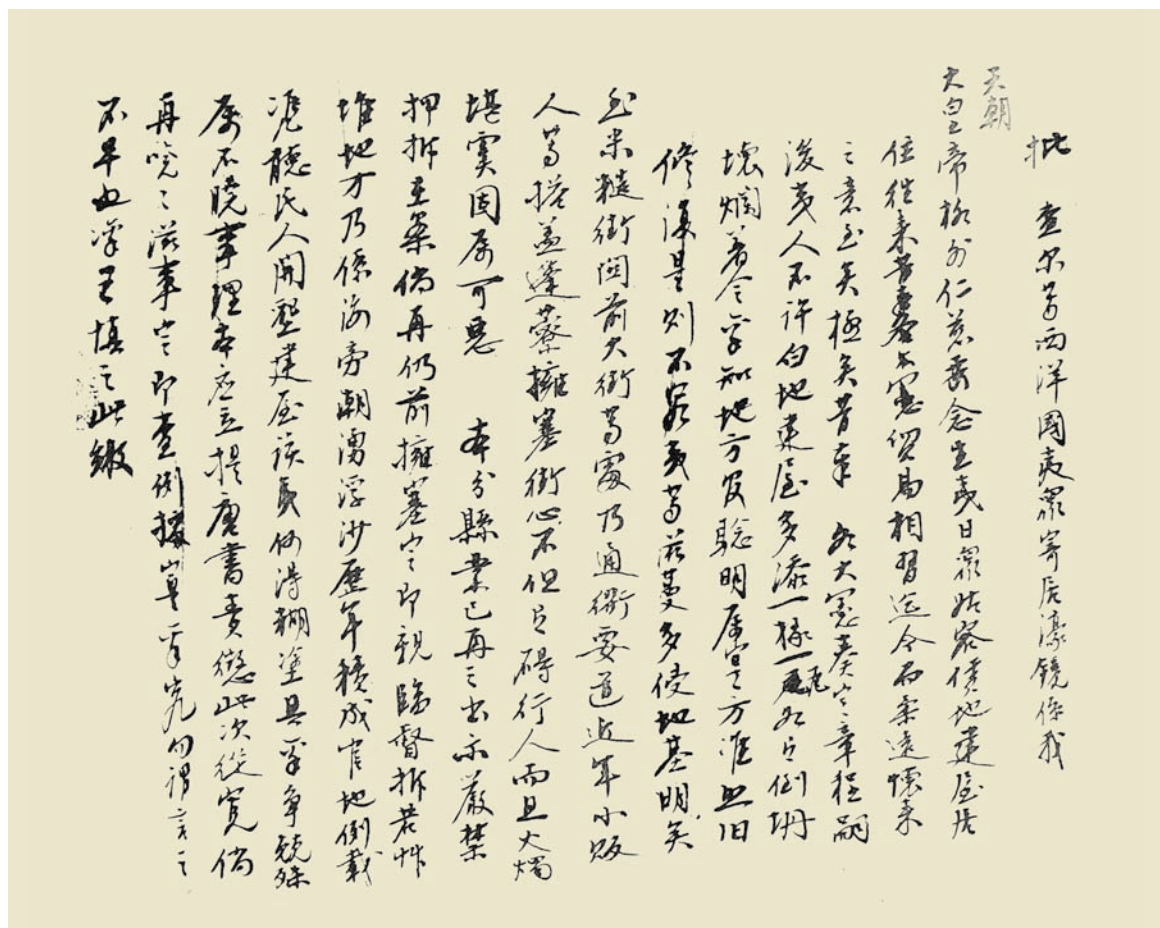 批 查尔等西洋國夷眾寄居濠鏡係我
天朝
大皇帝格外仁慈垂念生夷日眾姑容僦地建屋居
住往來貿易相習迄今而柔遠懷來
之意至矣極矣昔年 大憲奏定章程嗣
後夷人不許白地建屋多添一椽一 倒坍
壞爛着令 知地方官 明屬實方准照旧
修復是則不容夷等滋蔓多侵地基明矣
至米糙街関前大街等處乃通衢要道近年小販
人等搭盖蓬藔擁塞街心不但有碍行人而且火燭
堪虞固属可惡 本分縣業已再三出示嚴禁
押拆在案倘再仍前擁塞定即親臨督拆若
堆地方乃係海旁潮湧浮沙歷年積成官地例載
凴聽民人開墾建屋該夷何得糊塗具 爭競殊
属不曉事理本应立提唐書責懲此次從寬倘
再嘵嘵滋事定即查例擬 究勿謂言之
不早也凜之慎之此繳